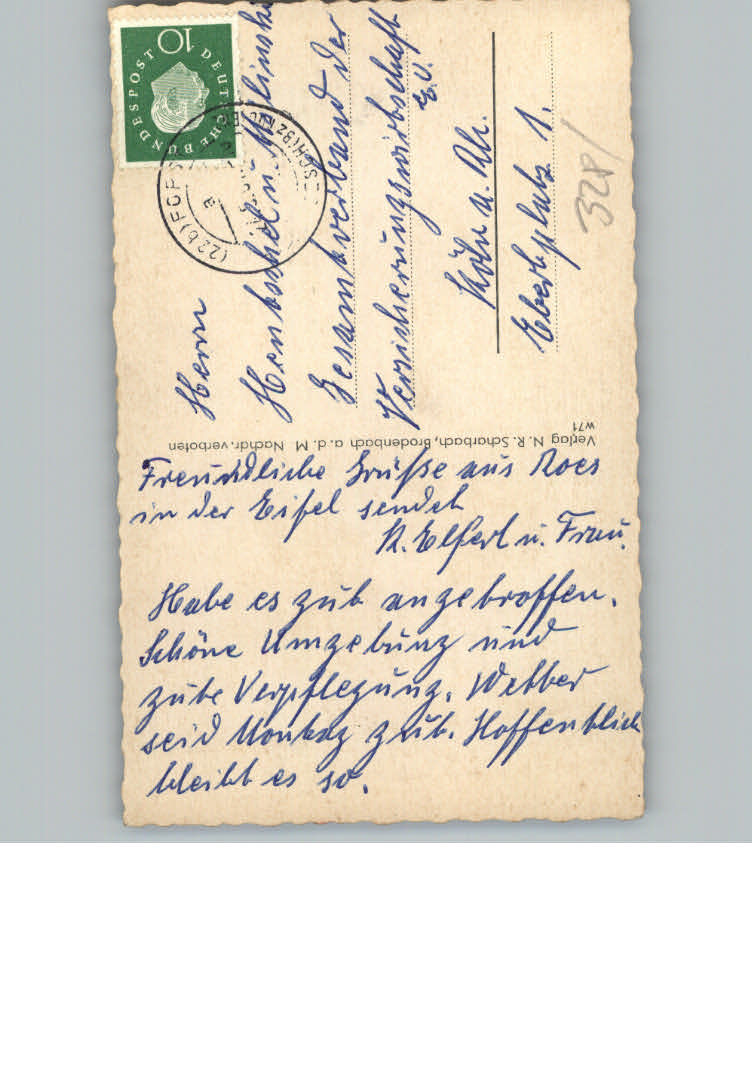 10
DEUTSCHE BUNDESPOST
(22b) FORST
a
Herrn
Hentschel u. Malinski
Gesamtverband der
Versicherungswirtschaft
E.V.
Köln a. Rh.
Ebertplatz 1.
328/
Verlag N. R. Scharbach, Brodenbach a. d. M Nachdr. verboten
W71
Freundliche Grüße aus Roes
in der Eifel sendet
R. Elfert u. Frau.
Habe es gut angetroffen.
Schöne Umgebung und
gute Verpflegung. Wetter
seid Montag gut. Hoffentlich
bleibt es so.